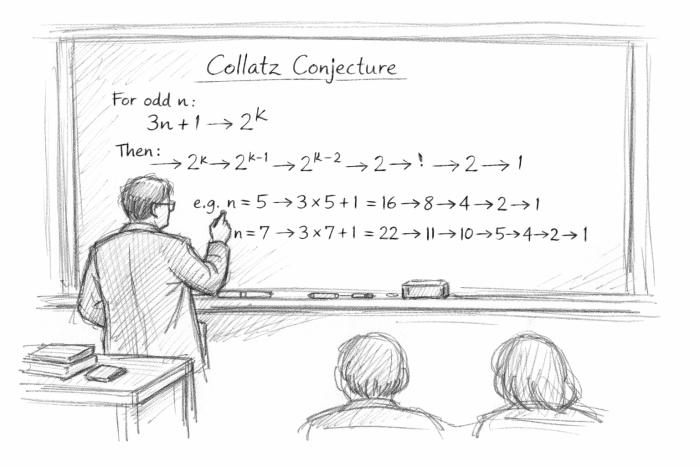 Collatz Conjecture
For odd n:
3n + 1 → 2^k
Then:
→ 2^k → 2^k-1 → 2^k-2 → 2 → ! → 2 → 1
e.g. n = 5 → 3 × 5 + 1 = 16 → 8 → 4 → 2 → 1
n = 7 → 3 × 7 + 1 = 22 → 11 → 10 → 5 → 4 → 2 → 1